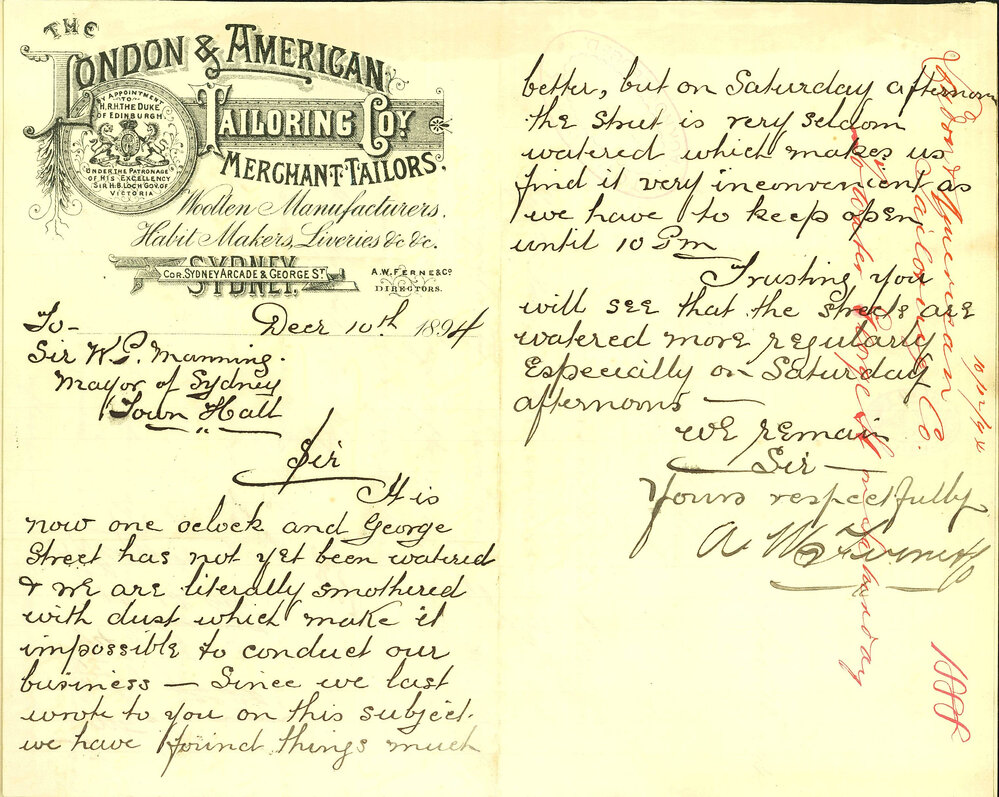 THE
LONDON & AMERICAN
TAILORING COY
MERCHANT TAILORS.
BY APPOINTMENT
TO
H.R.H. THE DUKE
OF EDINBURGH
UNDER THE PATRONAGE
OF HIS EXCELLENCY
SIR H.B. LOCH GOV. OF
VICTORIA
Woollen Manufacturers.
Habit Makers, Liveries &c &c.
COR. SYDNEY ARCADE & GEORGE ST
SYDNEY.
A.W. FERNE & CO
DIRECTORS.
Decr 10th 1894
To-
Sir W.P. Manning.
Mayor of Sydney
Town Hall
Sir
It is
now one oclock and George
Street has not yet been watered
& we are literally smothered
with dust which make it
impossible to conduct our
business — Since we last
wrote to you on this subject.
we have found things much
better, but on Saturday afternoon
the street is very seldom
watered which makes us
find it very inconvenient as
we have to keep open
until 10 Pm
Trusting you
will see that the streets are
watered more regularly
Especially on Saturday
afternoons —
We remain
Sir —
Yours respectfully
A W Ferne & Co
London & American
Tailoring Co.
10/12/94
George St